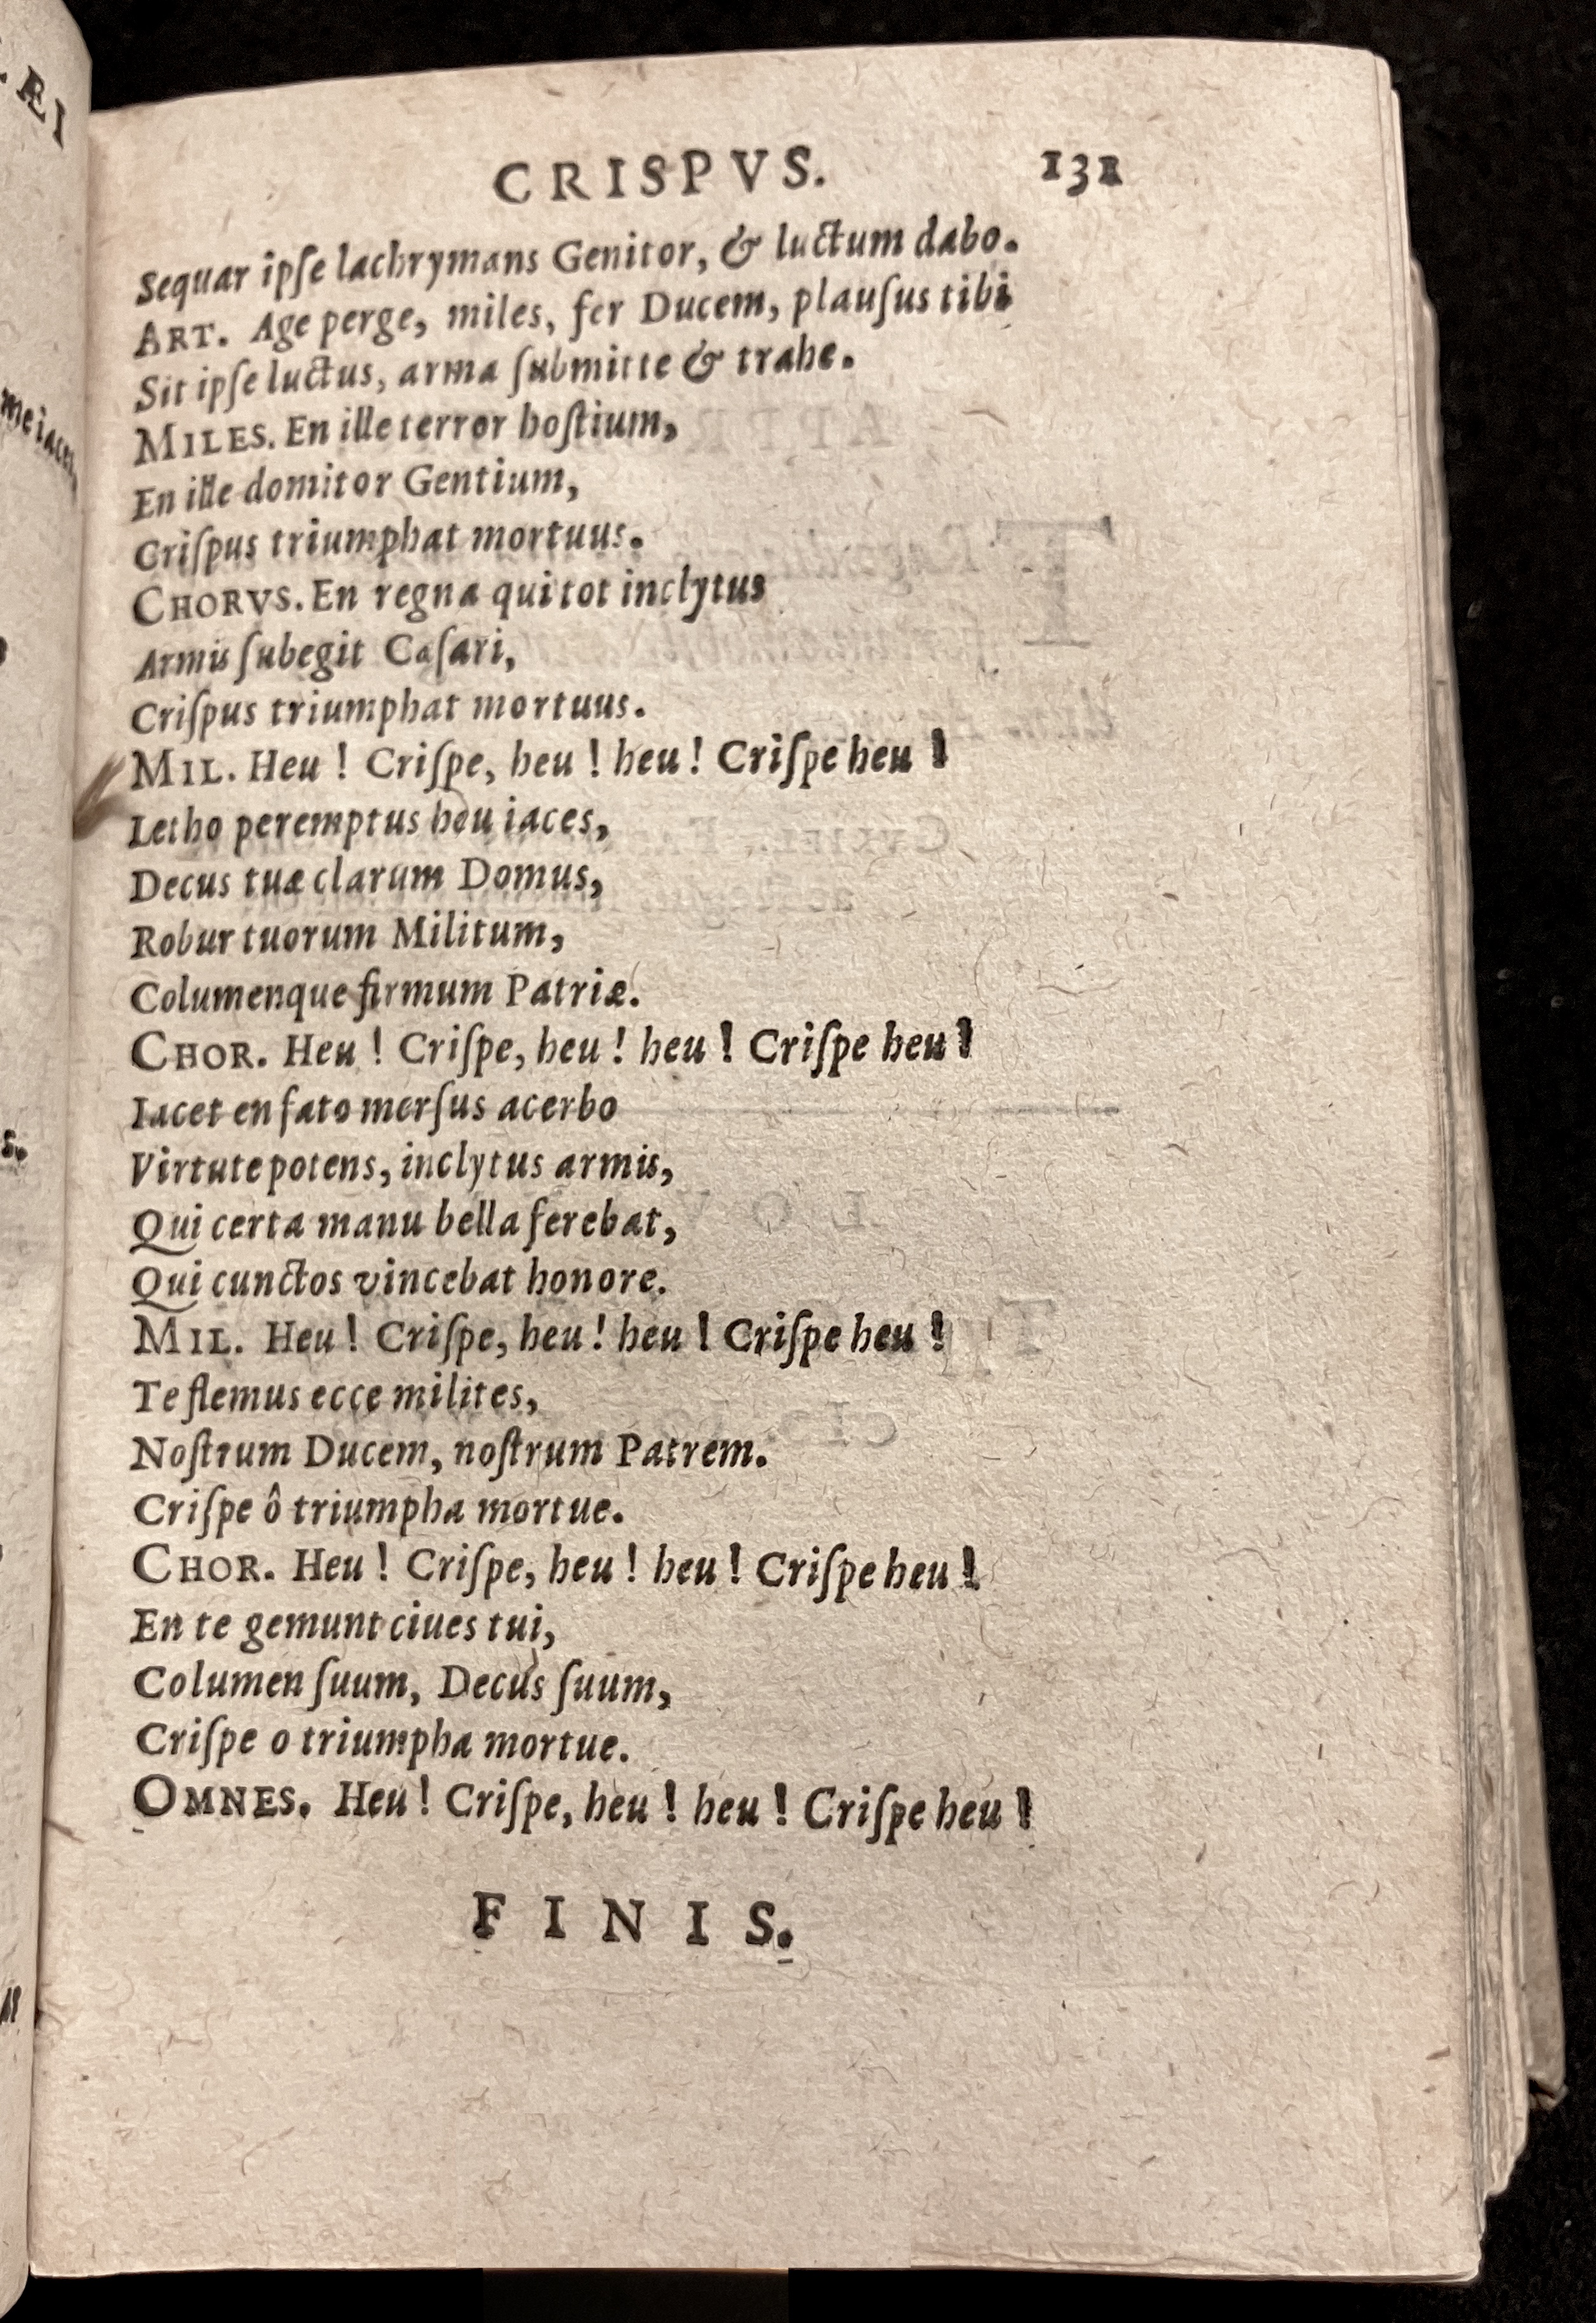 CRISPVS. 131
Sequar ipſe lachrymans Genitor, & luctum dabo.
ART. Age perge, miles, fer Ducem, plauſus tibi
Sit ipſe luctus, arma ſubmitte & trahe.
MILES. En ille terror hoſtium,
En ille domitor Gentium,
Criſpus triumphat mortuus.
CHORVS. En regna qui tot inclytus
Armis ſubegit Caſari,
Criſpus triumphat mortuus.
MIL. Heu ! Criſpe, heu ! heu ! Criſpe heu !
Letho peremptus heu iaces,
Decus tuæ clarum Domus,
Robur tuorum Militum,
Columenque firmum Patriæ.
CHOR. Heu ! Criſpe, heu ! heu ! Criſpe heu !
Iacet en fato merſus acerbo
Virtute potens, inclytus armis,
Qui certa manu bella ferebat,
Qui cunctos vincebat honore.
MIL. Heu ! Criſpe, heu ! heu ! Criſpe heu !
Te flemus ecce milites,
Noſtrum Ducem, noſtrum Patrem.
Criſpe ô triumpha mortue.
CHOR. Heu ! Criſpe, heu ! heu ! Criſpe heu !
En te gemunt ciues tui,
Columen ſuum, Decus ſuum,
Criſpe o triumpha mortue.
OMNES. Heu ! Criſpe, heu ! heu ! Criſpe heu !
FINIS.